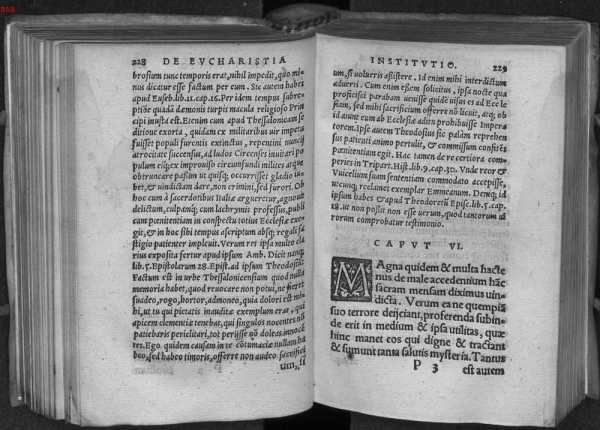 228 DE EVCHARISTIA
brosium tunc temporis erat, nihil impedit, quo mi-
nus dicatur esse factum per eum. Sic autem habes
apud Euseb. lib. 11. cap. 16. Per idem tempus subre-
ptione quadā dæmonis turpi macula religioso Prin
cipi inusta est. Etenim cum apud Thessalonicam se
ditione exorta, quidam ex militaribus uir impetu
fuisset populi furentis extinctus, repentini nuncij
atrocitate succensus, ad ludos Circenses inuitari po
pulum eiq; ex improuiso circumfundi milites atque
obtruncare passim ut quisq; occurrisset gladio iu-
bet, & uindictam dare, non crimini, sed furori. Ob
hoc cum à sacerdotibus Italiæ argueretur, agnouit
delictum, culpamq; cum lachrymis professus, publi
cam pœnitentiam in conspectu totius Ecclesiæ exe-
git, & in hoc sibi tempus ascriptum absq; regali fa
stigio patienter impleuit. Verum res ipsa multo cla
rius exposita fertur apud ipsum Amb. Dicit nanq;
lib. 5. Epistolarum 28. Epist. ad ipsum Theodosiū:
Factum est in urbe Thessalonicensium quod nulla
memoria habet, quod reuocare non potui, ne fieret
suadeo, rogo, hortor, admoneo, quia dolori est mi-
hi, ut tu qui pietatis inauditæ exemplum eras, qui
apicem clementiæ tenebas, qui singulos nocentes nō
patiebaris periclitari, tot perijsse nō doleas innocē
tes. Ego quidem causam in te cotumaciæ nullam ha
beo, sed habeo timoris, offerre non audeo sacrificiū
INSTITVTIO. 229
um, si uolueris assistere. Id enim mihi interdictum
aduerti. Cum enim essem solicitus, ipsa nocte qua
proficisci parabam uenisse quidē uisus es ad Eccle
siam, sed mihi sacrificium offerre nō licuit, atq; ob
id aiunt eum ab Ecclesiæ aditu prohibuisse Impera
torem. Ipse autem Theodosius sic palàm reprehen
sus patienti animo pertulit, & commissum confitēs
pœnitentiam egit. Hac tamen de re certiora com-
peries in Tripart. Hist. lib. 9. cap. 30. Vnde reor &
Vuicelium suam sententiam commodato accepisse,
utcunq; reclamet exemplar Emneanum. Deniq; id
ipsum habes & apud Theodoretū Episc. lib. 5. cap.
18. ut non possit non esse uerum, quod tantorum ui
rorum comprobatur testimonio.
CAPVT VI.
MAgna quidem & multa hacte
nus de male accedentium hāc
sacram mensam diximus uin-
dicta. Verum ea ne quempiā
suo terrore deijciant, proferenda subin-
de erit in medium & ipsa utilitas, quæ
hinc manet eos qui digne & tractant
& sumunt tanta salutis mysteria. Tantus
P 3 est autem